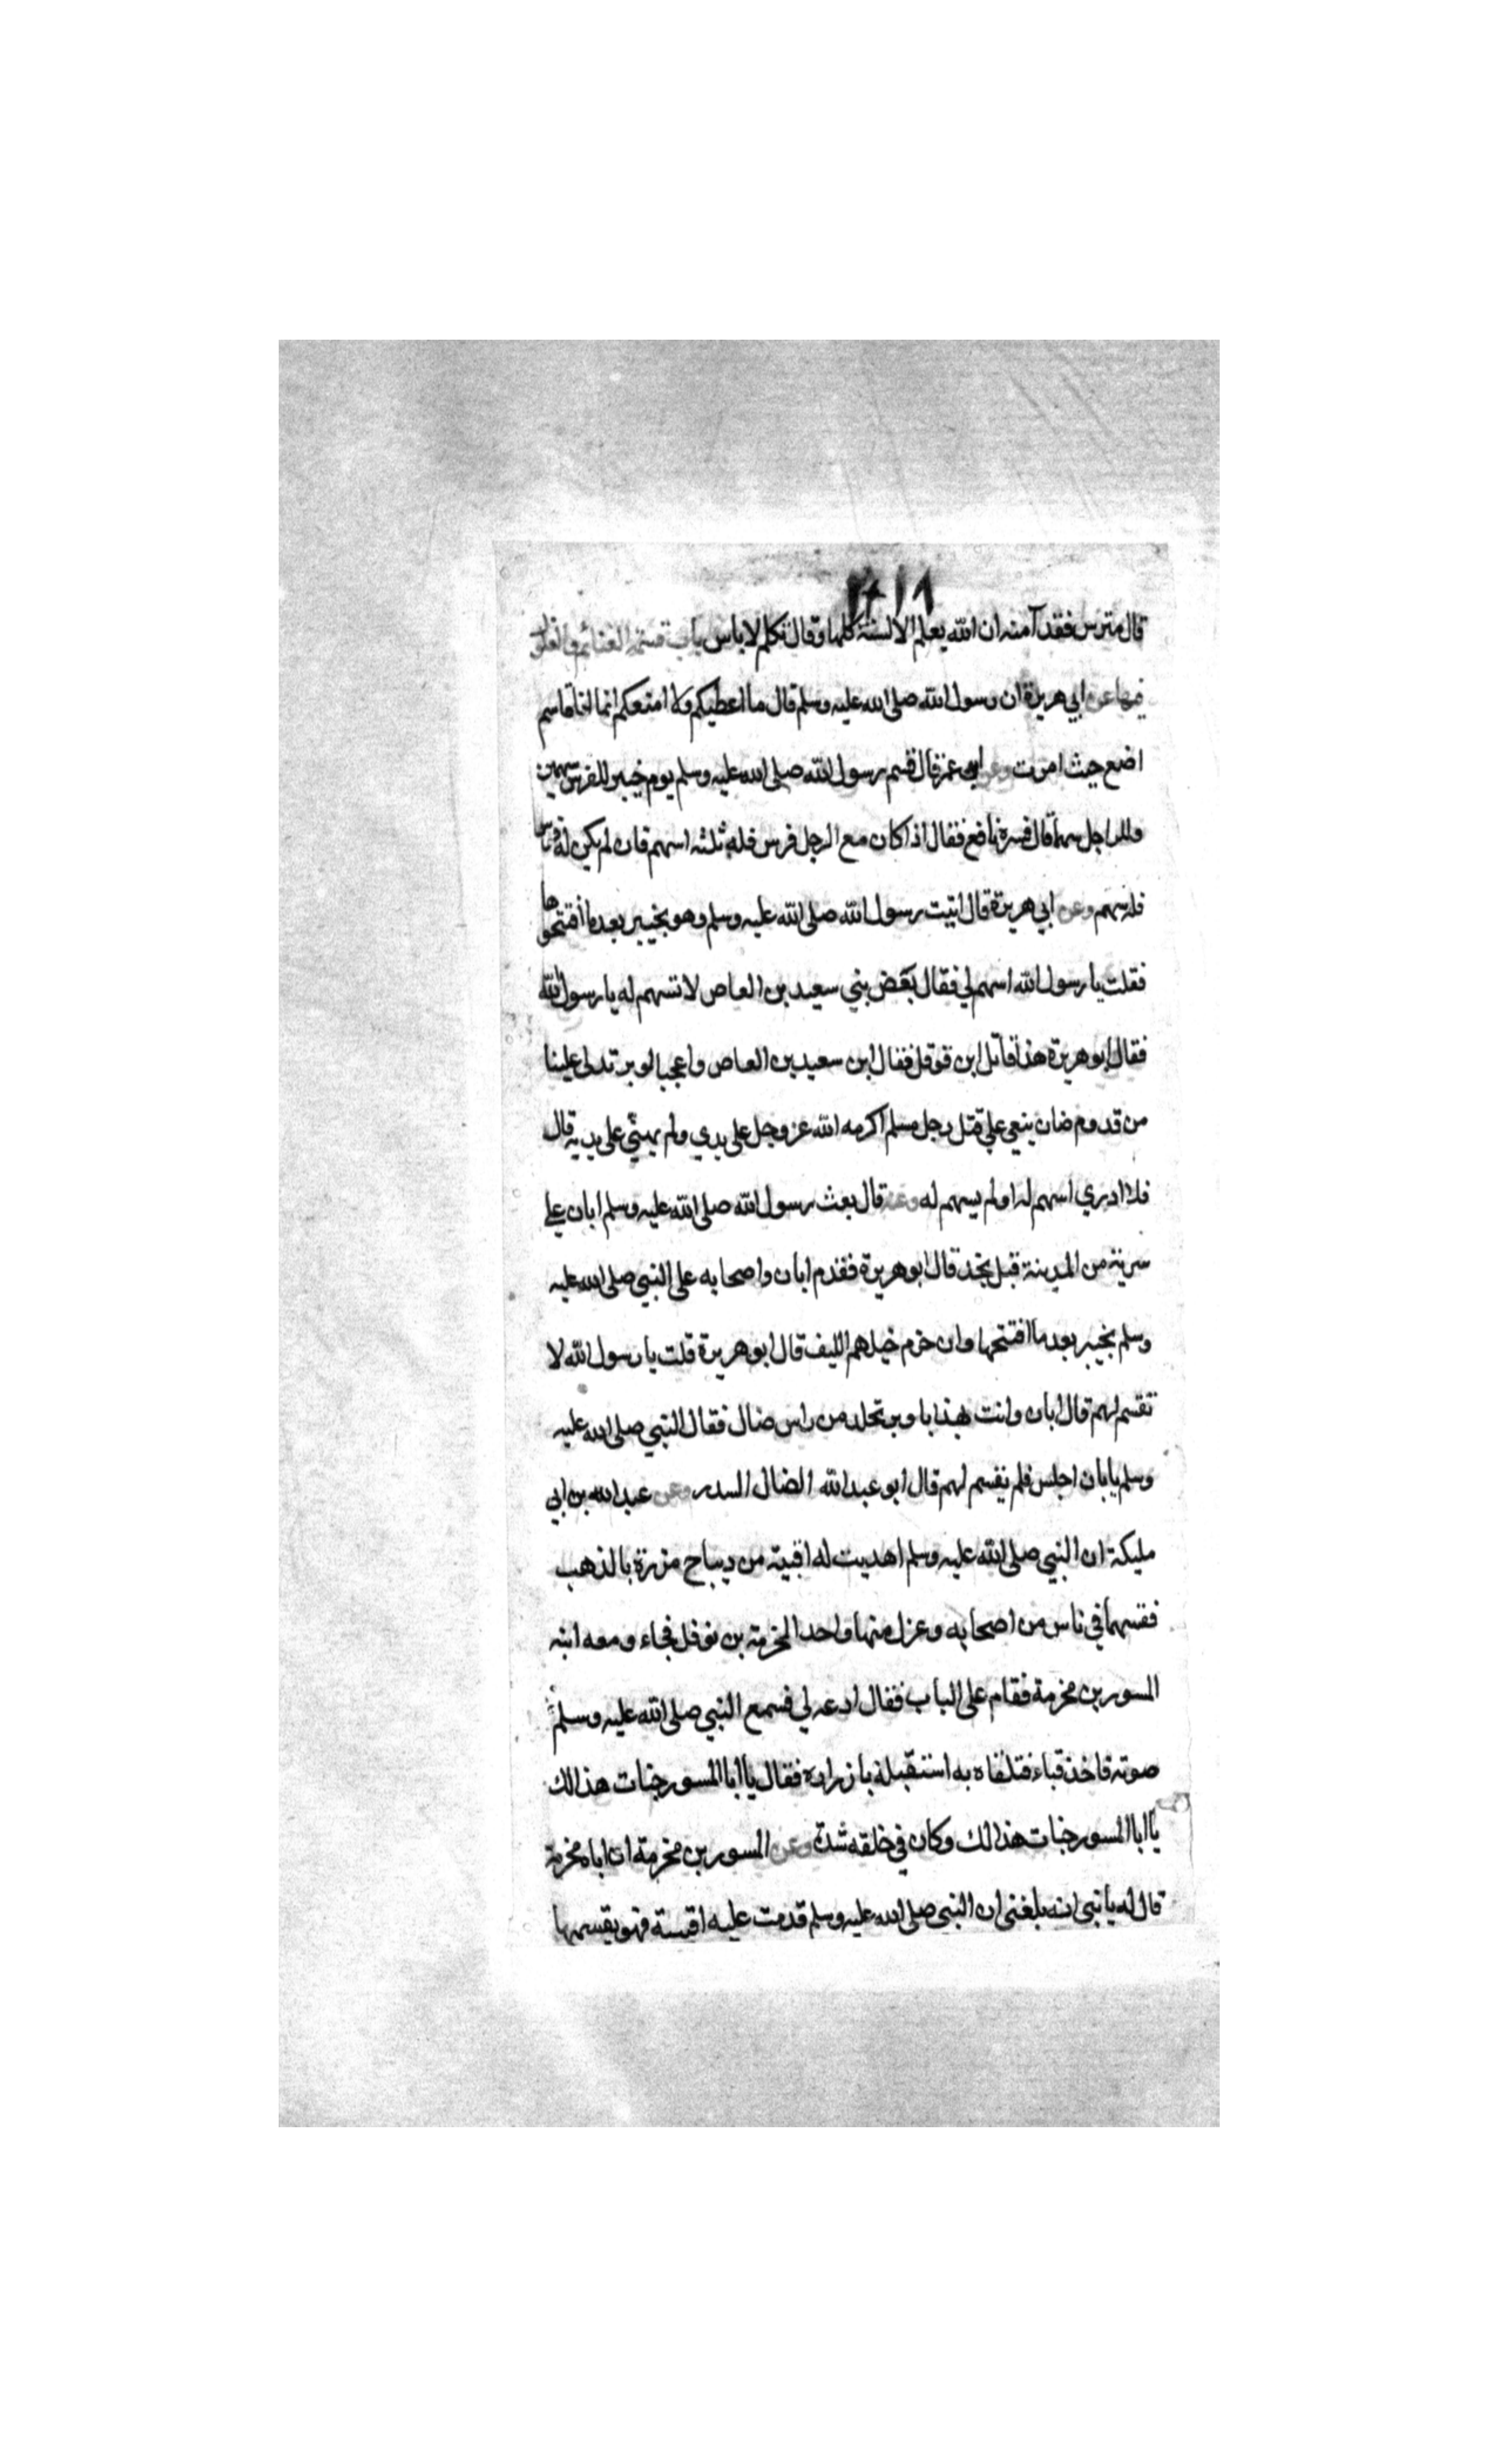 قال مترس فقد آمنه ان الله يعلم الالسنة كلها وقال تكلم لا باس باب قسمة الغنائم والغلول
فيها عن ابي هريرة ان رسول الله صلى الله عليه وسلم قال ما اعطيكم ولا امنعكم انما انا قاسم
اضع حيث امرت وعن ابن عمر قال قسم رسول الله صلى الله عليه وسلم يوم خيبر للفرس سهمين
وللراجل سهما قال فسره نافع فقال اذا كان مع الرجل فرس فله ثلثه اسهم فان لم يكن له فرس
فله سهم وعن ابي هريرة قال اتيت رسول الله صلى الله عليه وسلم وهو بخيبر بعد ما افتتحوها
فقلت يا رسول الله اسهم لي فقال بعض بني سعيد بن العاص لا تسهم له يا رسول الله
فقال ابو هريرة هذا قاتل ابن قوقل فقال ابن سعيد بن العاص واعجبا لوبر تدلى علينا
من قدوم ضان ينعي علي قتل رجل مسلم اكرمه الله عز وجل على يدي ولم يهني على يديه قال
فلا ادري اسهم له او لم يسهم له وعنه قال بعث رسول الله صلى الله عليه وسلم ابان علي
سرية من المدينة قبل نجد قال ابو هريرة فقدم ابان واصحابه على النبي صلى الله عليه
وسلم بخيبر بعد ما افتتحها وان حزم خيلهم الليف قال ابو هريرة قلت يا رسول الله لا
تقسم لهم قال ابان وانت بهذا يا وبر تحدر من راس ضال فقال النبي صلى الله عليه
وسلم يا ابان اجلس فلم يقسم لهم قال ابو عبد الله الضال السدر وعن عبد الله بن ابي
مليكة ان النبي صلى الله عليه وسلم اهديت له اقبية من ديباح مزررة بالذهب
فقسمها في ناس من اصحابه وعزل منها واحدا لمخرمة بن نوفل فجاء ومعه ابنه
المسور بن مخرمة فقام على الباب فقال ادعه لي فسمع النبي صلى الله عليه وسلم
صوته فاخذ قباء فتلقاه به استقبله بازراره فقال يا ابا المسور خبات هذا لك
يا ابا المسور خبات هذا لك وكان في خلقه شدة وعن المسور بن مخرمة ان اباه مخرمة
قال له يا نبي انه بلغني ان النبي صلى الله عليه وسلم قدمت عليه اقبية فهو يقسمها